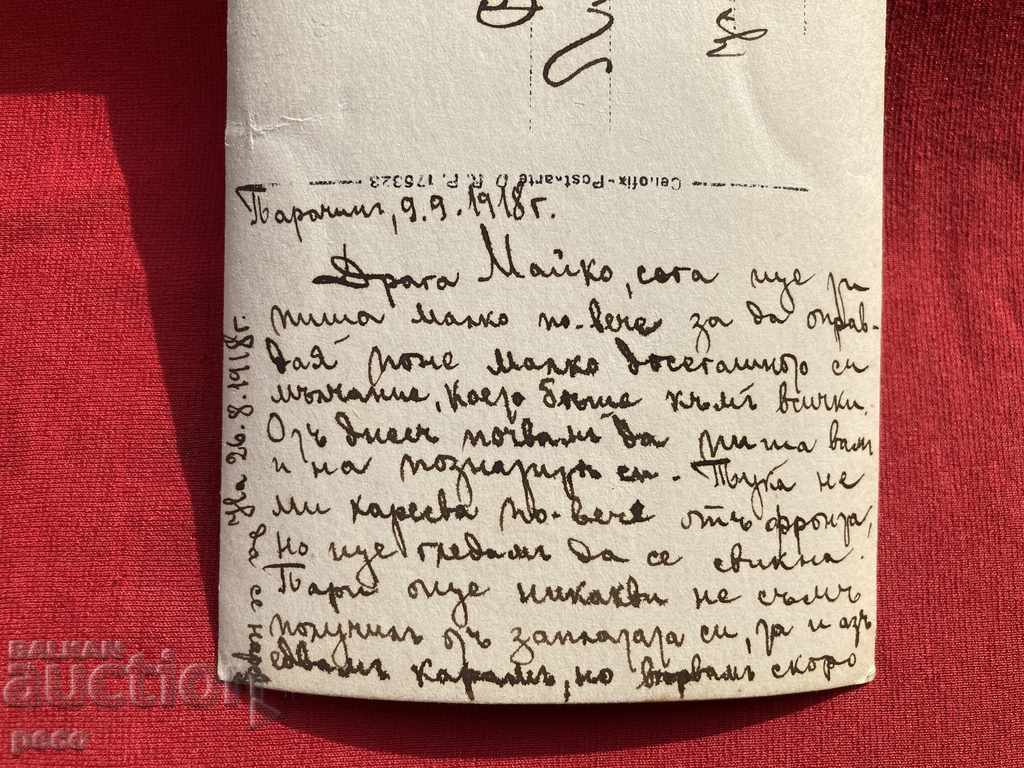 Cellofix-Postkarte D. R. P. 175323
Парачинъ, 9.9.1918 г.
Драга Майко, сега ще ти
пиша малко по-вече за да оправ-
дая поне малко досегашното си
мълчание, което бѣше къмъ всички.
Отъ днесъ почвамъ да пиша вамъ
и на познатитѣ си. Тука не
ми харесва по-вече отъ фронта,
но ще гледамъ да се свикна.
Пари още никакви не съмъ
получилъ отъ заплатата си, та и азъ
едвамъ карамъ, но вѣрвамъ скоро
да се наре
26.8.1918 г.
BALKAN
auction
peco